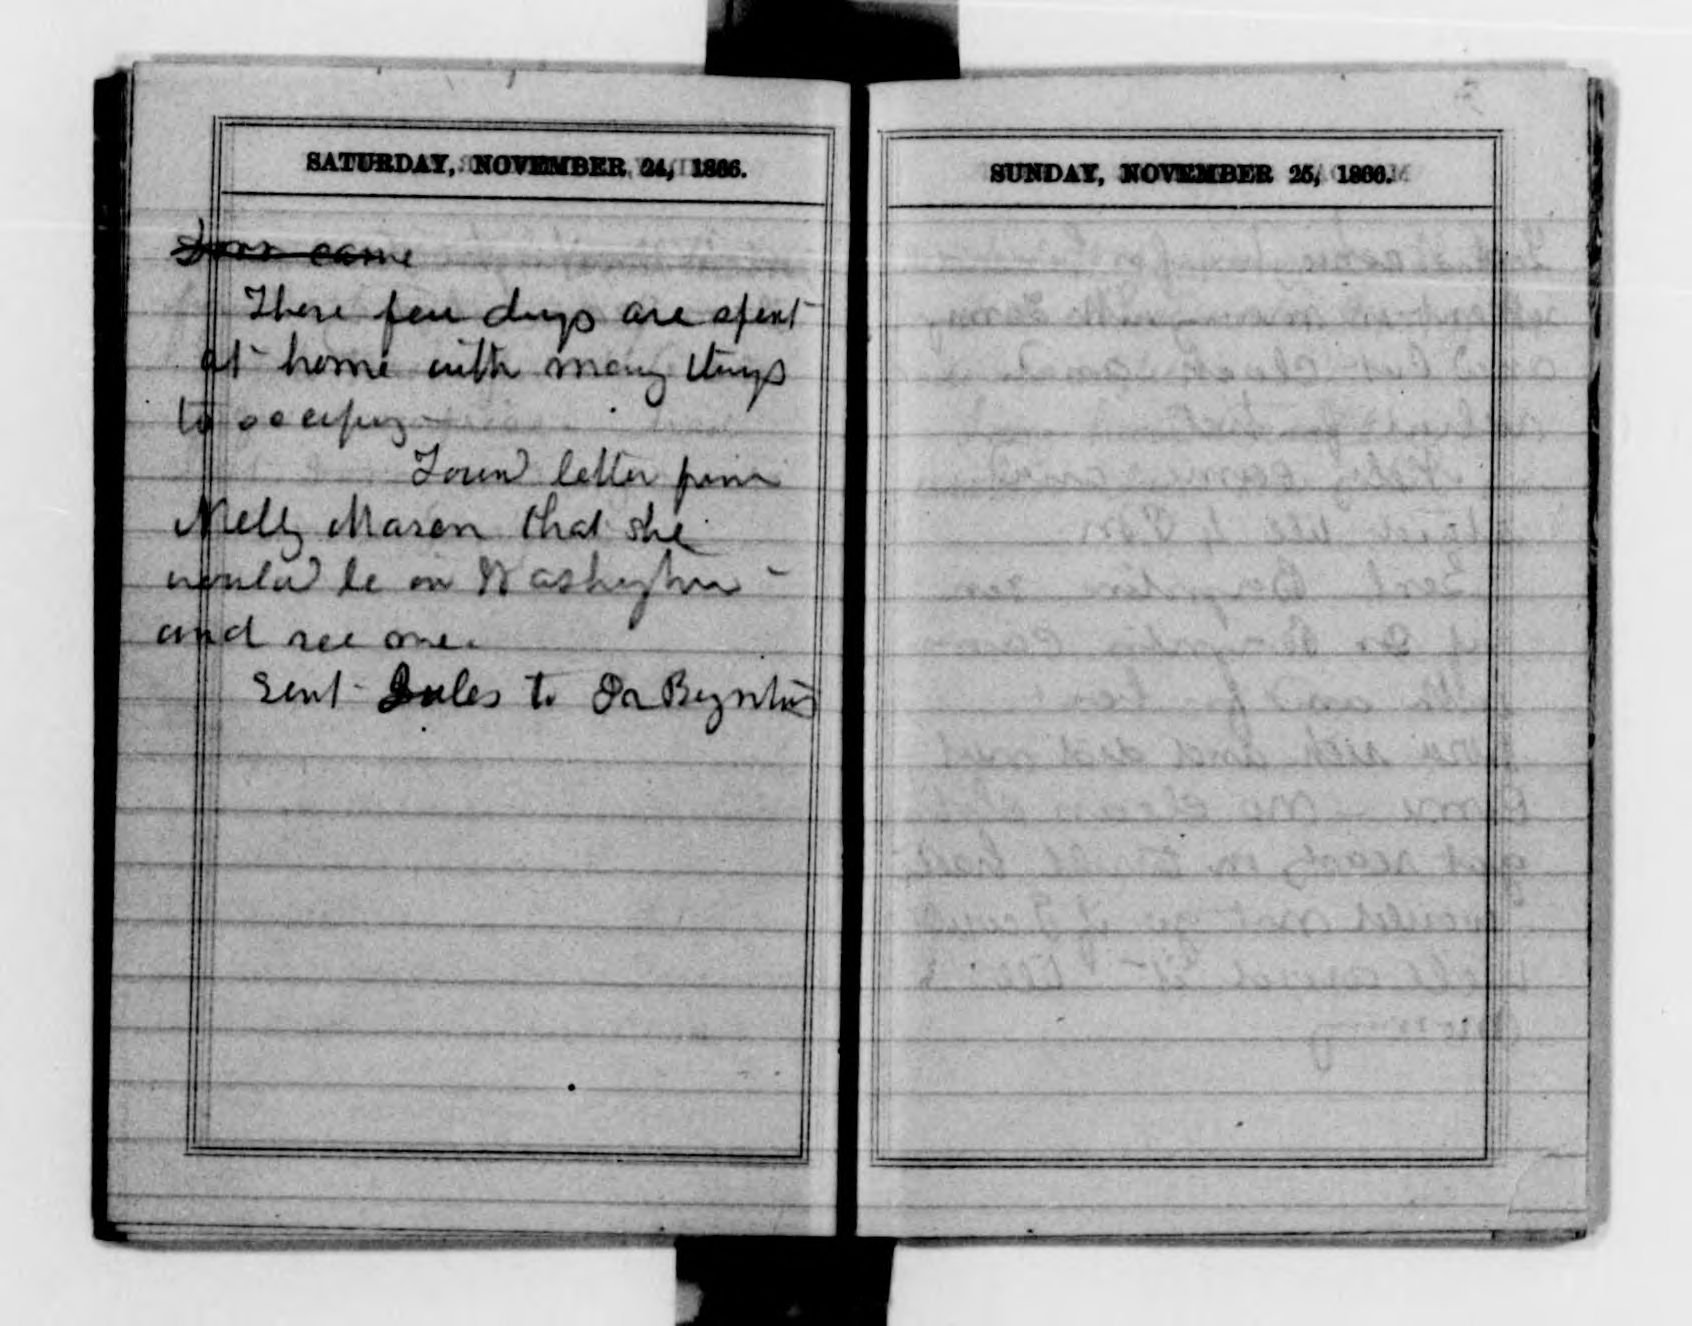 SATURDAY, NOVEMBER 24, 1866.
came
These few days are spent
at home with many things
to occupy
Found letter from
Nelly Mason that she
would be in Washington -
and see me.
Sent Jules to Dr Boyntons
SUNDAY, NOVEMBER 25, 1866.